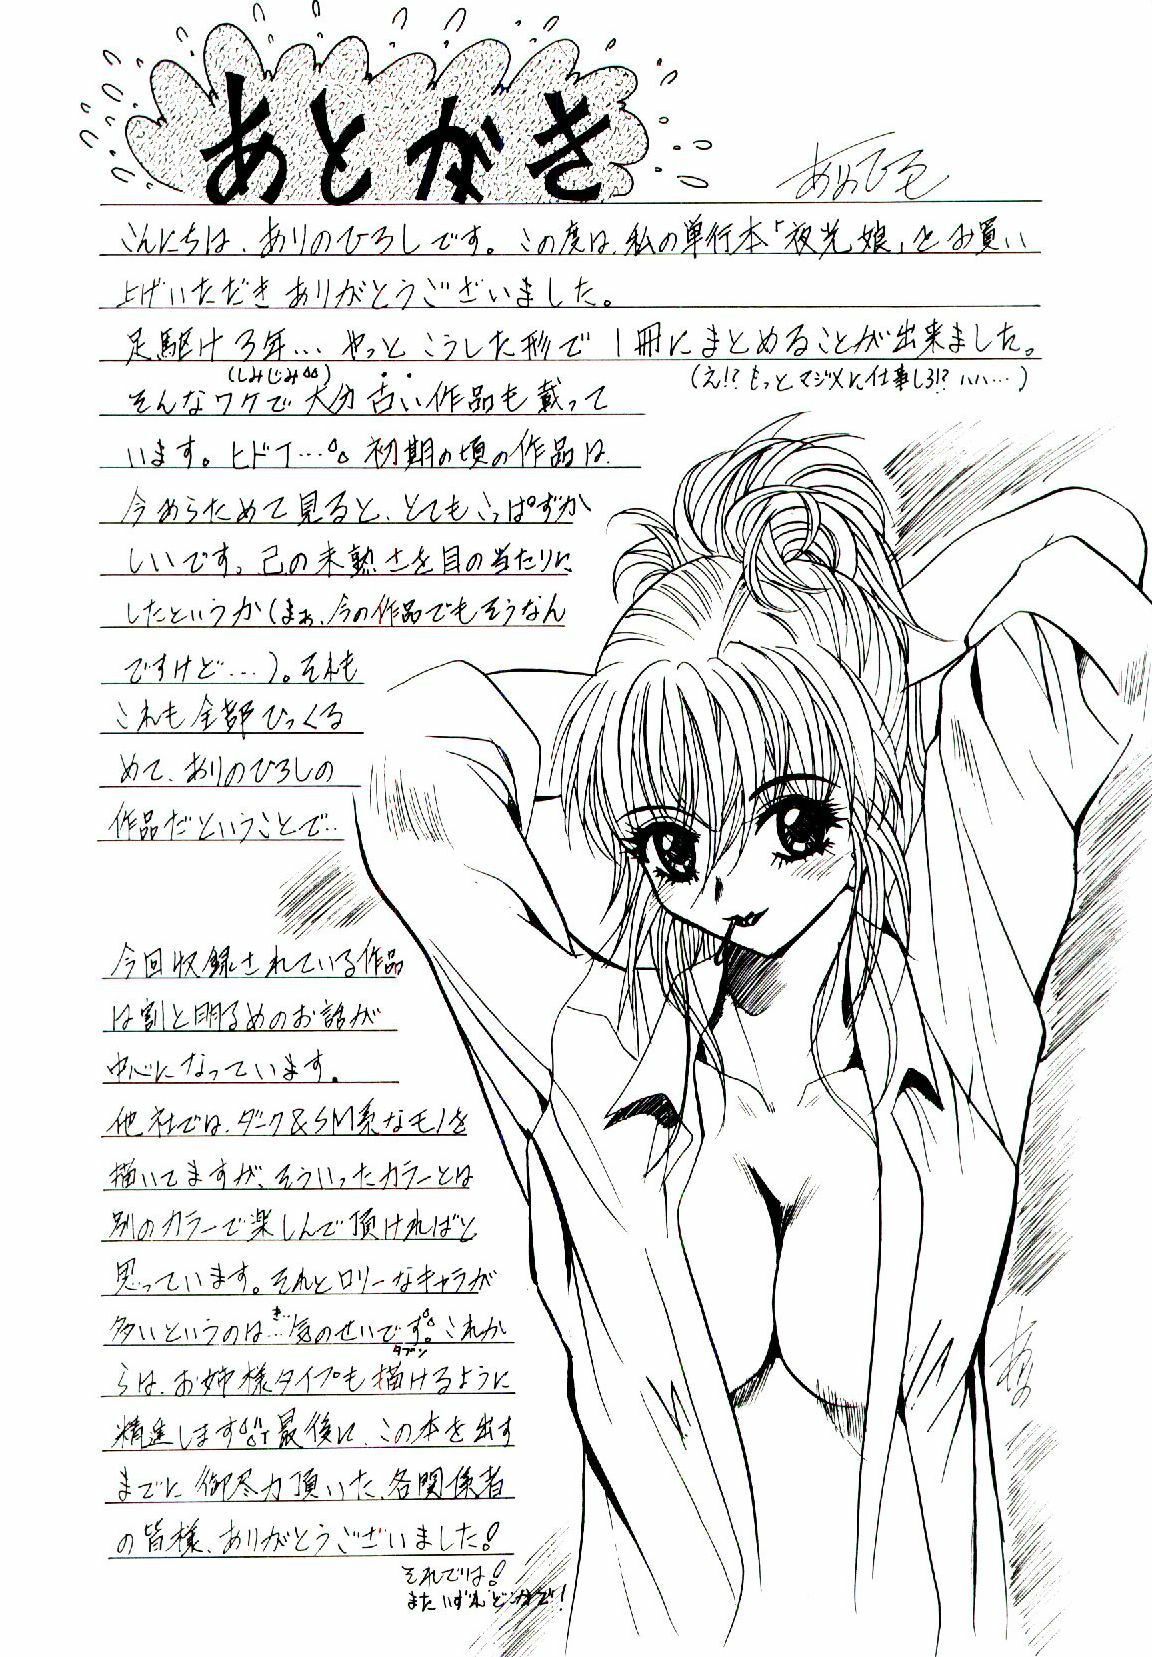 あとがき
ありのひろし
こんにちは、ありのひろしです。この度は、私の単行本「夜光娘」をお買い
上げいただきありがとうございました。
足駆け3年… やっとこうした形で1冊にまとめることが出来ました。
(しみじみ) (え!? もっとマジメに仕事しろ!? ハハ…)
そんなワケで大分古い作品も載って
います。ヒドイ…初期の頃の作品は、
今あらためて見ると、とてもこっぱずか
しいです。己の未熟さを目の当たりに
したというか(まぁ、今の作品でもそうなん
ですけど…)。それも
これも全部ひっくる
めて、ありのひろしの
作品だということで…
今回収録されている作品
は割と明るめのお話が
中心になっています。
他社では、ダーク&SM系なモノを
描いてますが、そういったカラーとは
別のカラーで楽しんで頂ければと
思っています。それとロリーなキャラが
多いというのは…気のせいです。これか
き…
タブン
らは、お姉様タイプも描けるように
精進します 最後に、この本を出す
までに御尽力頂いた、各関係者
の皆様、ありがとうございました!
それでは!
またいずれどこかで!